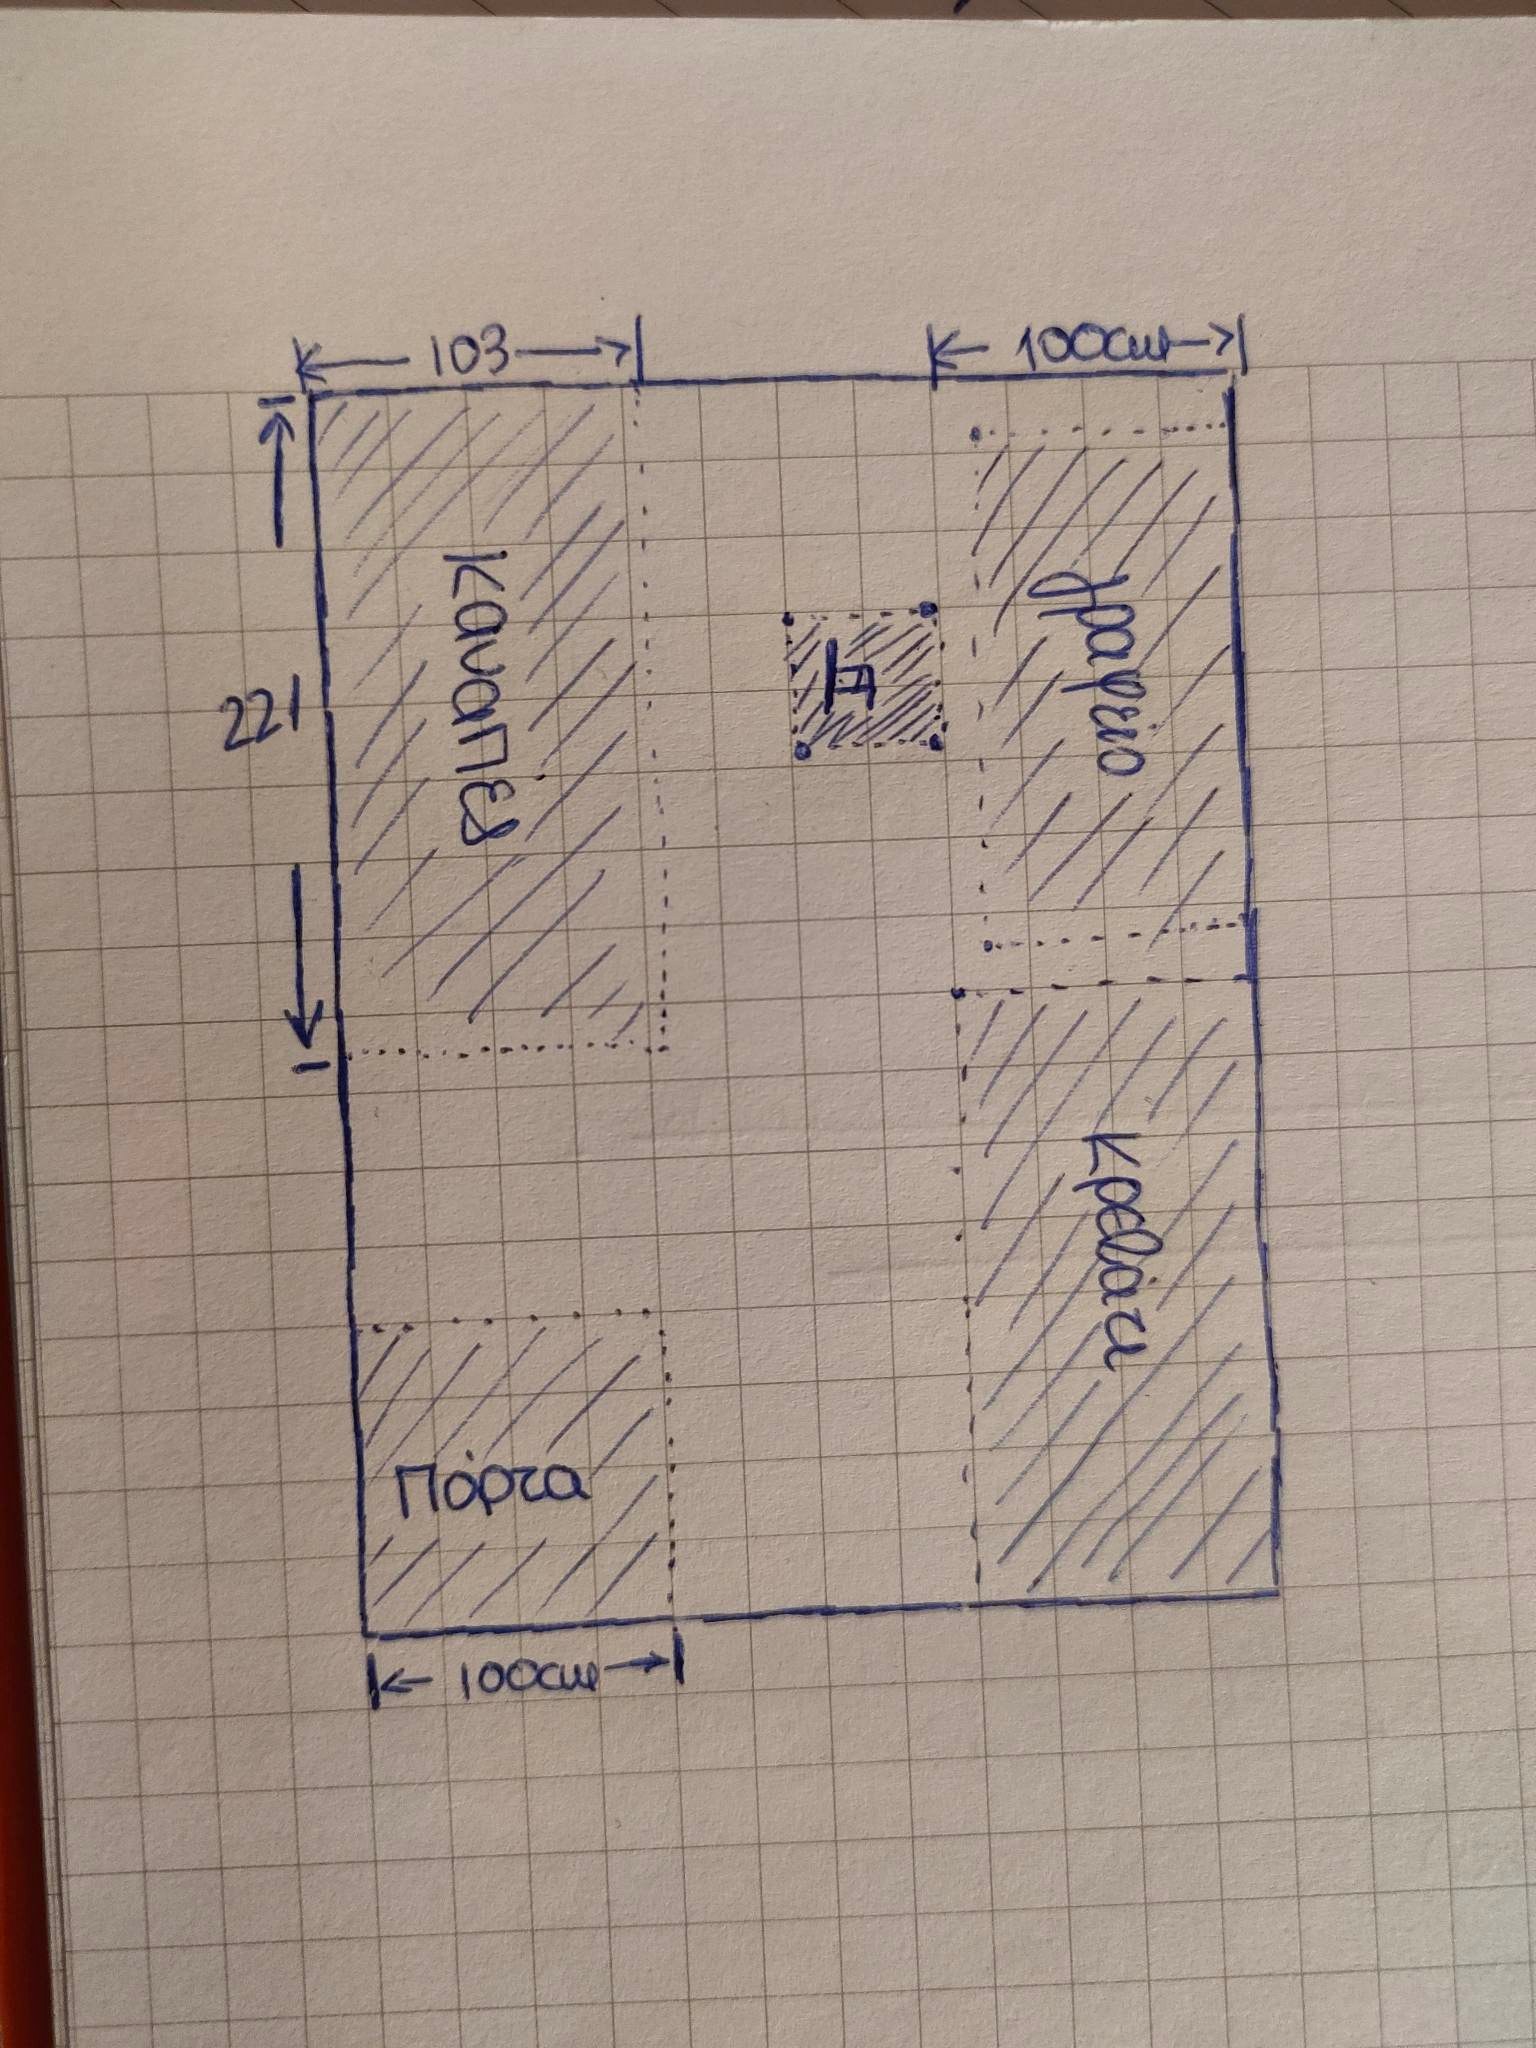 103
100cm
221
Καναπές
Γραφείο
Κρεβάτι
Πόρτα
100cm